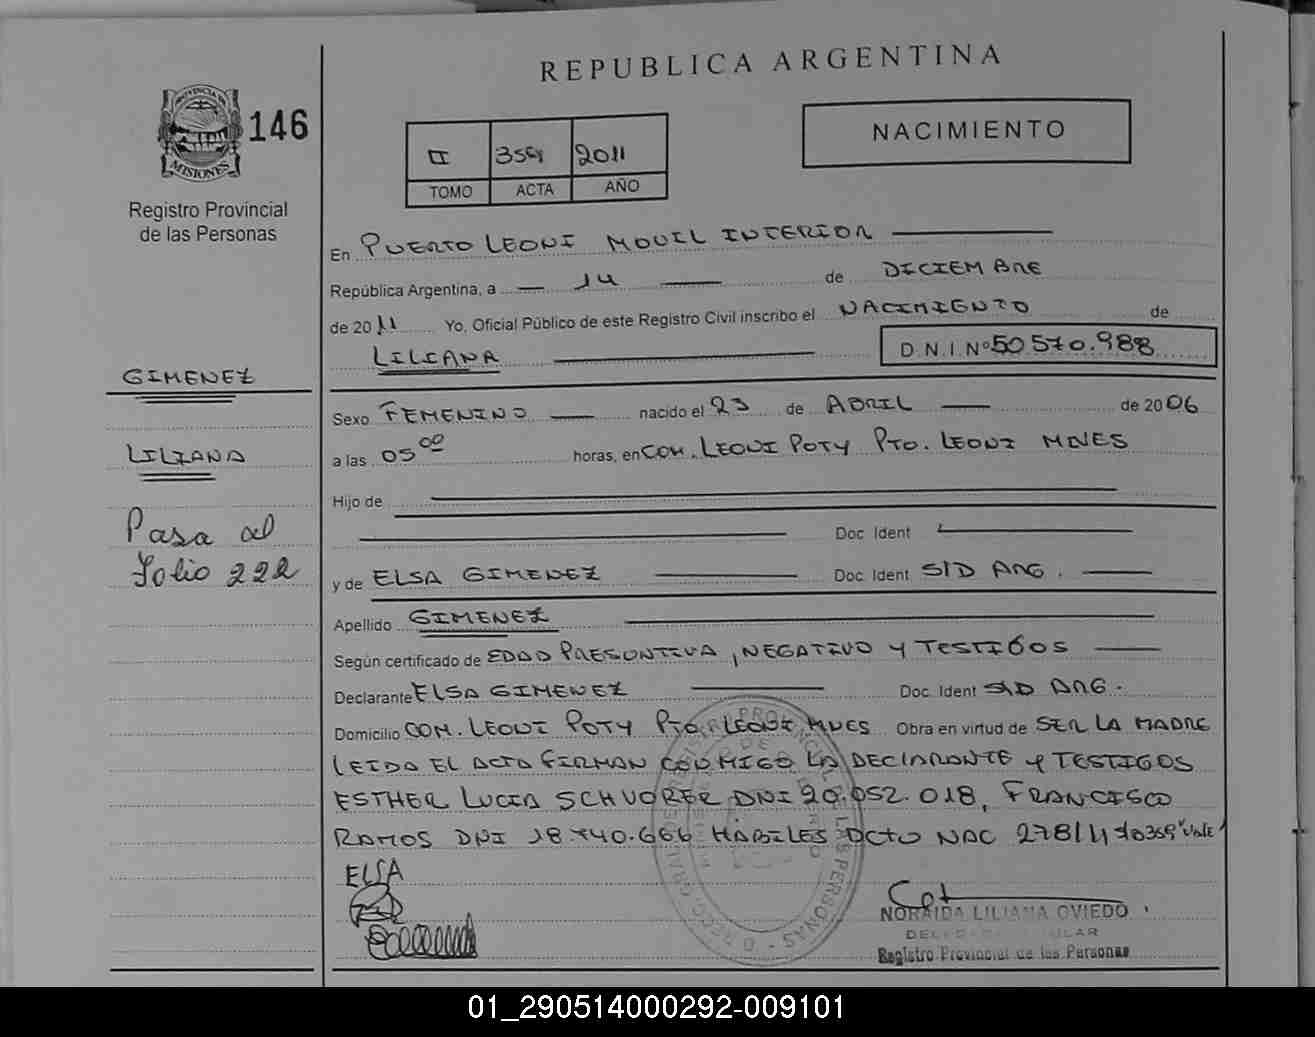 REPUBLICA ARGENTINA
PROVINCIA DE
MISIONES
146
Registro Provincial
de las Personas
II 359 2011
TOMO ACTA AÑO
NACIMIENTO
En PUERTO LEONI MOVIL INTERIOR
República Argentina, a 14 de DICIEMBRE
de 2011 Yo, Oficial Público de este Registro Civil inscribo el NACIMIENTO de
LILIANA D.N.I. Nº 50 570.988
GIMENEZ
LILIANA
Pasa al
Folio 222
Sexo FEMENINO nacido el 23 de ABRIL de 2006
a las 05 00 horas, en COM. LEONI POTY PTO. LEONI MNES
Hijo de
Doc. Ident
y de ELSA GIMENEZ Doc. Ident S/D ARG.
Apellido GIMENEZ
Según certificado de EDAD PRESUNTIVA, NEGATIVO Y TESTIGOS
Declarante ELSA GIMENEZ Doc. Ident S/D ARG.
Domicilio COM. LEONI POTY PTO. LEONI MNES Obra en virtud de SER LA MADRE
LEIDA EL ACTA FIRMAN CONMIGO LA DECLARANTE Y TESTIGOS
ESTHER LUCIA SCHVORER DNI 20.052.018, FRANCISCO
RAMOS DNI 18.740.666 HÁBILES DCTO NAC 278/11 "VALE"
ELSA
NORAIDA LILIANA OVIEDO
Registro Provincial de las Personas
01_290514000292-009101